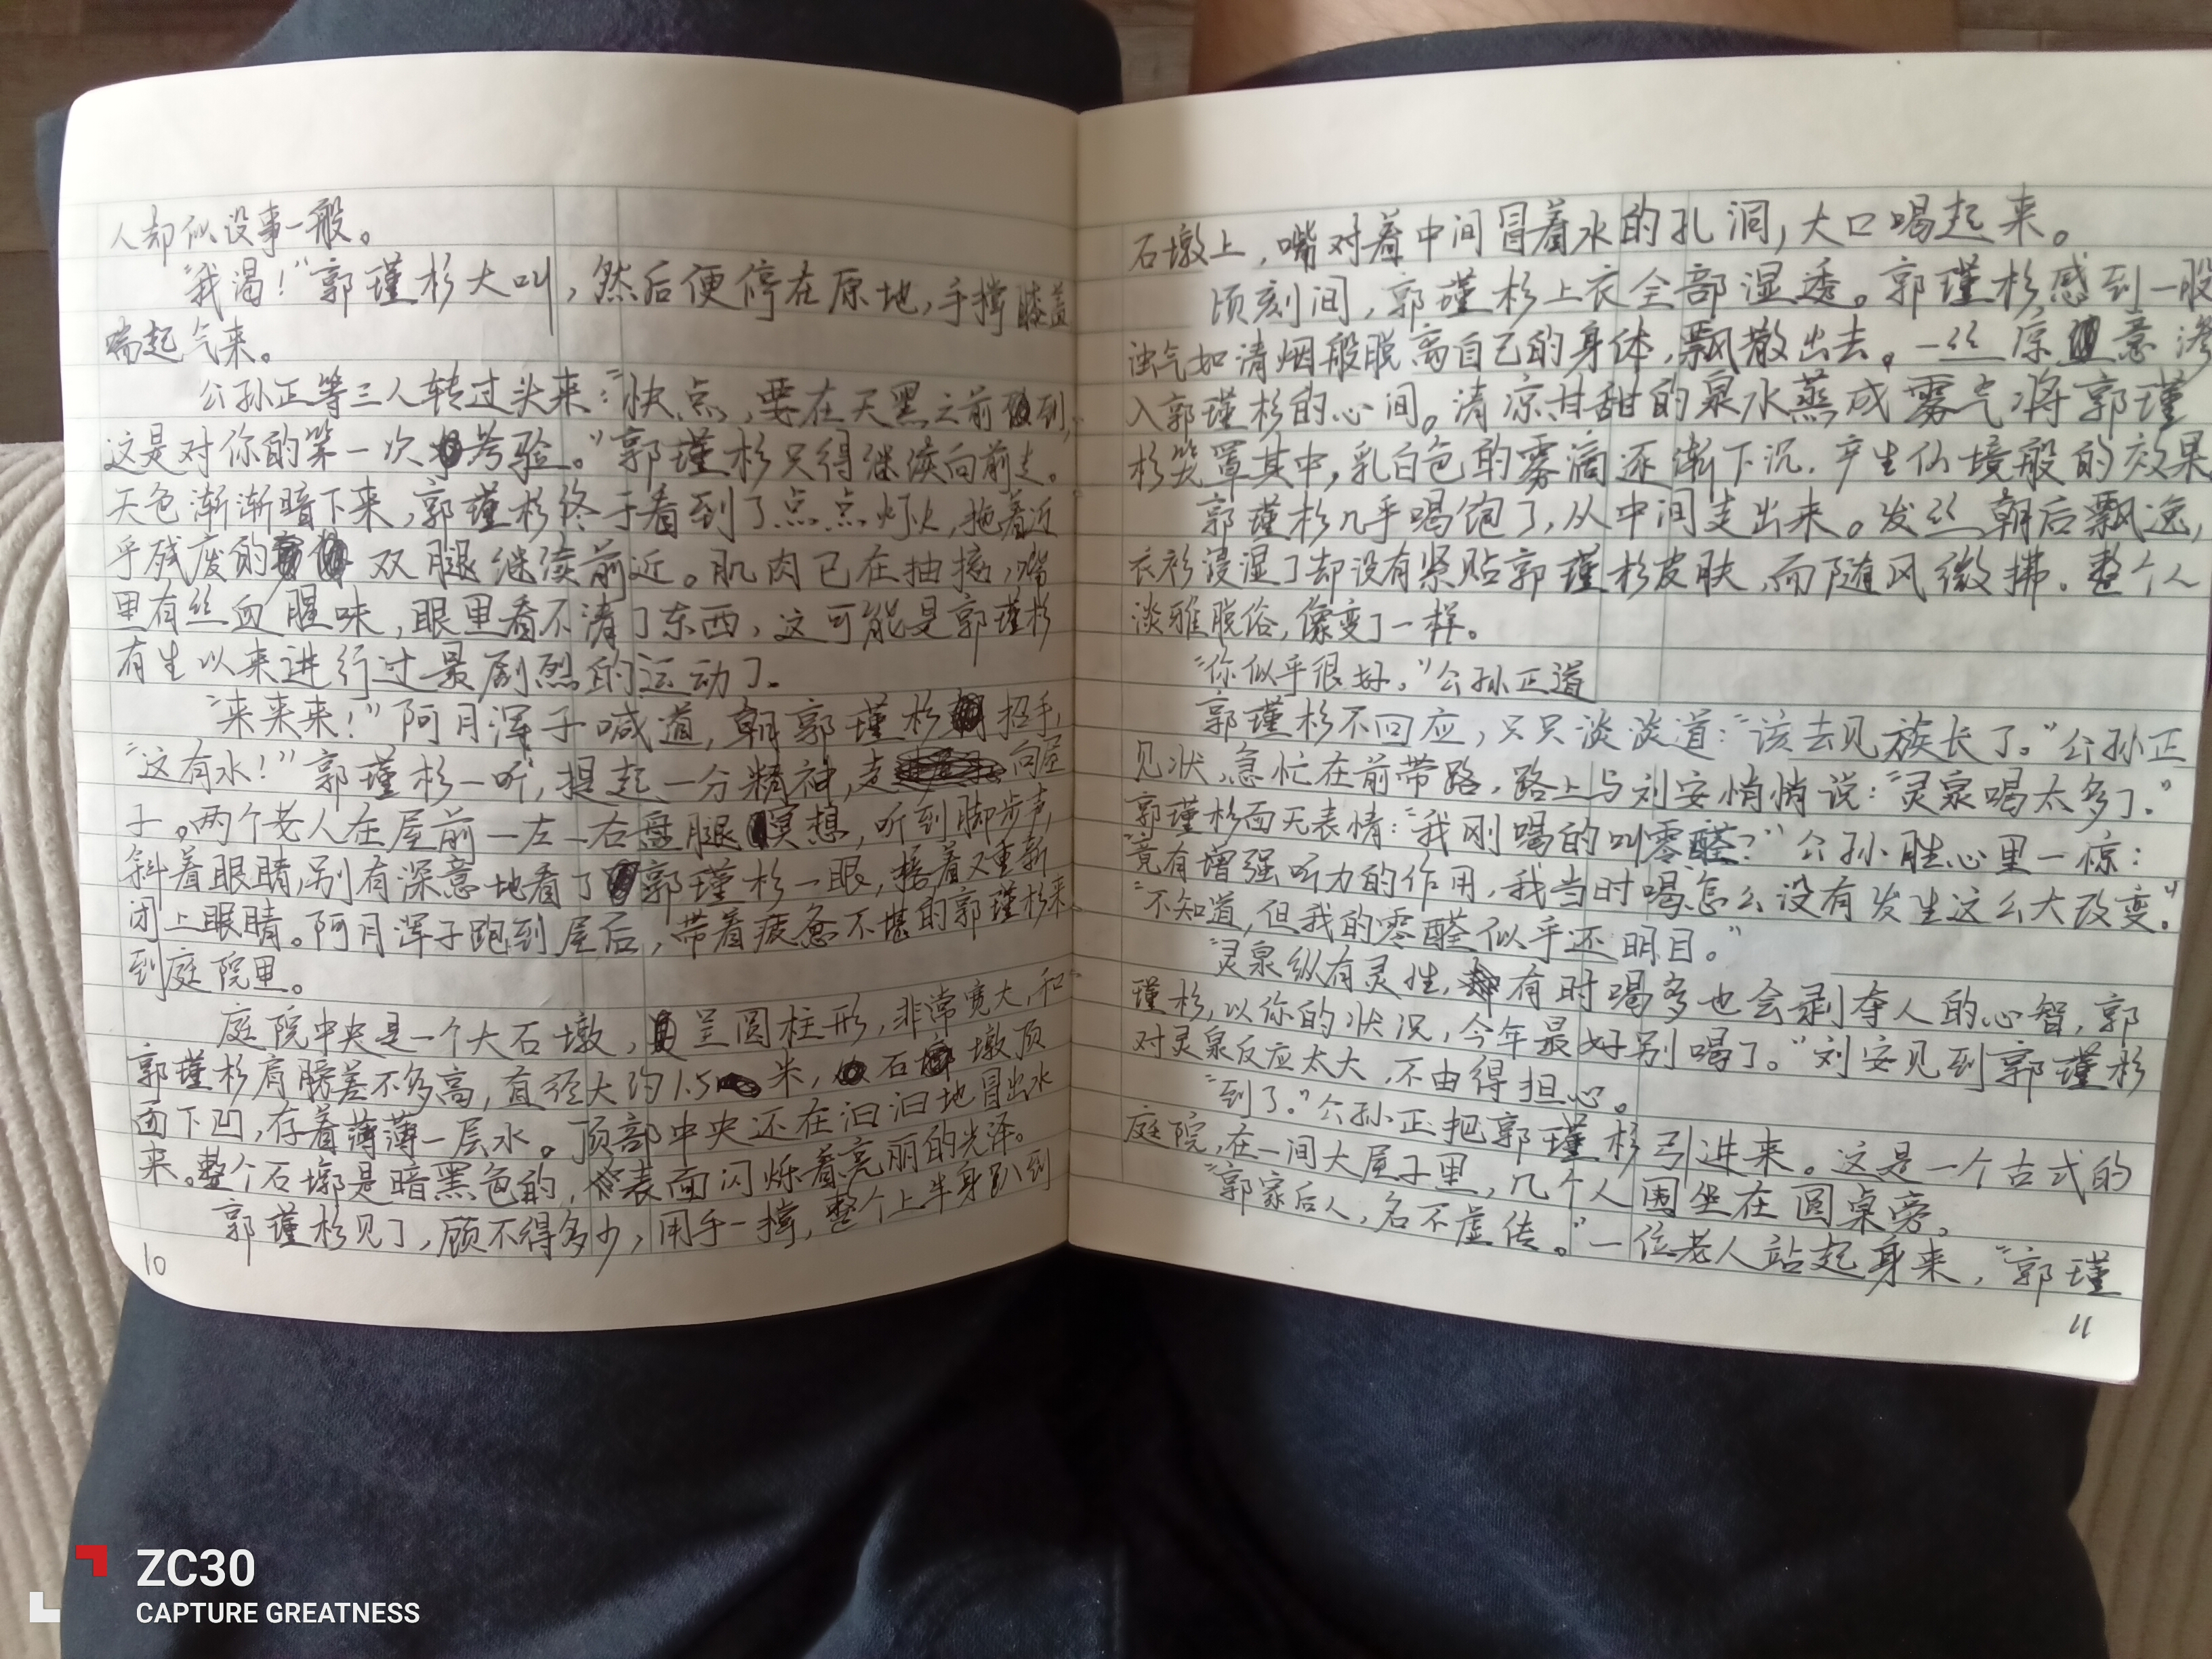 人却似没事一般。
“我渴！”郭瑾杉大叫，然后便停在原地，手撑膝盖
喘起气来。
公孙正等三人转过头来：“快点，要在天黑之前到，
这是对你的第一次考验。”郭瑾杉只得继续向前走。
天色渐渐暗下来，郭瑾杉终于看到了点点灯火，拖着近
乎残废的双腿继续前近。肌肉已在抽搐，嘴
里有丝血腥味，眼里看不清了东西，这可能是郭瑾杉
有生以来进行过最剧烈的运动了。
“来来来！”阿月浑子喊道，朝郭瑾杉招手，
“这有水！”郭瑾杉一听，提起一分精神，走向屋
子。两个老人在屋前一左一右盘腿冥想，听到脚步声，
斜着眼睛，别有深意地看了郭瑾杉一眼，接着又重新
闭上眼睛。阿月浑子跑到屋后，带着疲惫不堪的郭瑾杉来
到庭院里。
庭院中央是一个大石墩，呈圆柱形，非常宽大，和
郭瑾杉肩膀差不多高，直径大约1.5米，石墩顶
面下凹，存着薄薄一层水。顶部中央还在汩汩地冒出水
来。整个石墩是暗黑色的，表面闪烁着亮丽的光泽。
郭瑾杉见了，顾不得多少，用手一撑，整个上半身趴到
10
石墩上，嘴对着中间冒着水的孔洞，大口喝起来。
顷刻间，郭瑾杉上衣全部湿透。郭瑾杉感到一股
浊气如清烟般脱离自己的身体，飘散出去。一丝凉意渗
入郭瑾杉的心间。清凉甘甜的泉水蒸成雾气将郭瑾
杉笼罩其中，乳白色的雾滴逐渐下沉，产生仙境般的效果。
郭瑾杉几乎喝饱了，从中间走出来。发丝朝后飘逸，
衣衫浸湿了却没有紧贴郭瑾杉皮肤，而随风微拂。整个人
淡雅脱俗，像变了一样。
“你似乎很好。”公孙正道
郭瑾杉不回应，只只淡淡道：“该去见族长了。”公孙正
见状，急忙在前带路，路上与刘安悄悄说：“灵泉喝太多了。”
郭瑾杉面无表情：“我刚喝的叫零醛？”公孙胜心里一惊：
“竟有增强听力的作用，我当时喝怎么没有发生这么大改变。”
“不知道，但我的零醛似乎还明目。”
“灵泉纵有灵性，有时喝多也会剥夺人的心智，郭
瑾杉，以你的状况，今年最好别喝了。”刘安见到郭瑾杉
对灵泉反应太大，不由得担心。
“到了。”公孙正把郭瑾杉引进来。这是一个古式的
庭院，在一间大屋子里，几个人围坐在圆桌旁。
“郭家后人，名不虚传。”一位老人站起身来，“郭瑾
11
ZC30
CAPTURE GREATNESS